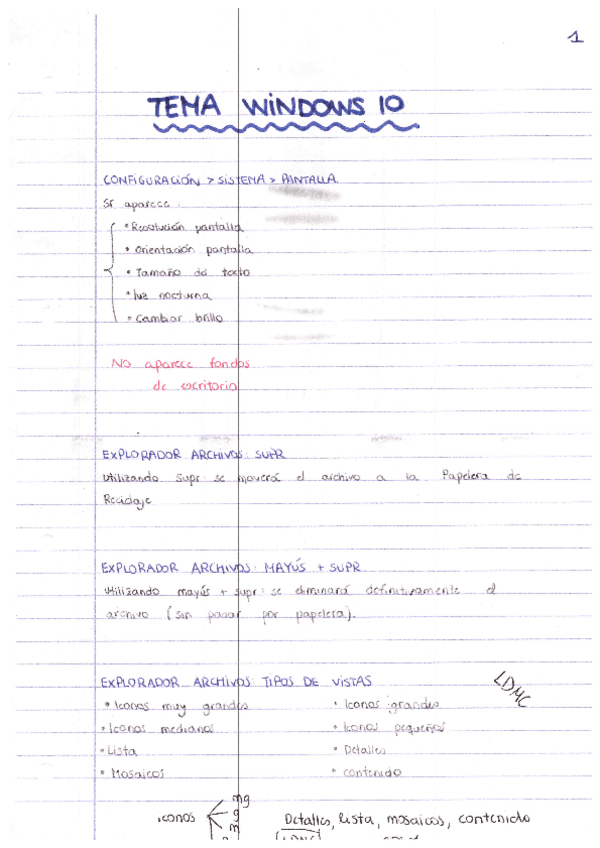 1
TEMA WINDOWS 10
CONFIGURACIÓN > SISTEMA > PANTALLA
SÍ aparece :
• Resolución pantalla
• Orientación pantalla
• Tamaño de texto
• luz nocturna
• Cambiar brillo
No aparece fondos
de escritorio
EXPLORADOR ARCHIVOS: SUPR
Utilizando supr se moverá el archivo a la Papelera de
Reciclaje
EXPLORADOR ARCHIVOS: MAYÚS + SUPR
Utilizando mayús + supr se eliminará definitivamente el
archivo (sin pasar por papelera).
EXPLORADOR ARCHIVOS: TIPOS DE VISTAS
LDMC
• Iconos muy grandes
• Iconos grandes
• Iconos medianos
• Iconos pequeños
• Lista
• Detalles
• Mosaicos
• contenido
iconos
mg
g
m
Detalles, lista, mosaicos, contenido
(LDMC)